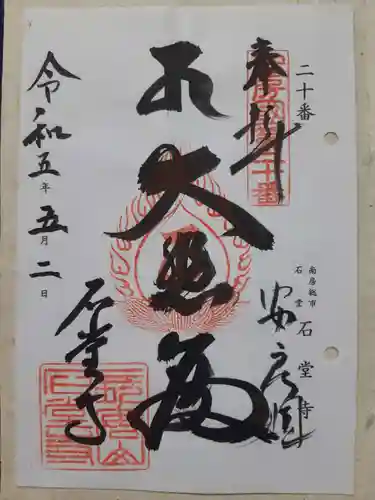 二十番
奉拝
南房総市
石堂
石堂寺
安房国
大悲殿
令和五年五月二日
石堂寺